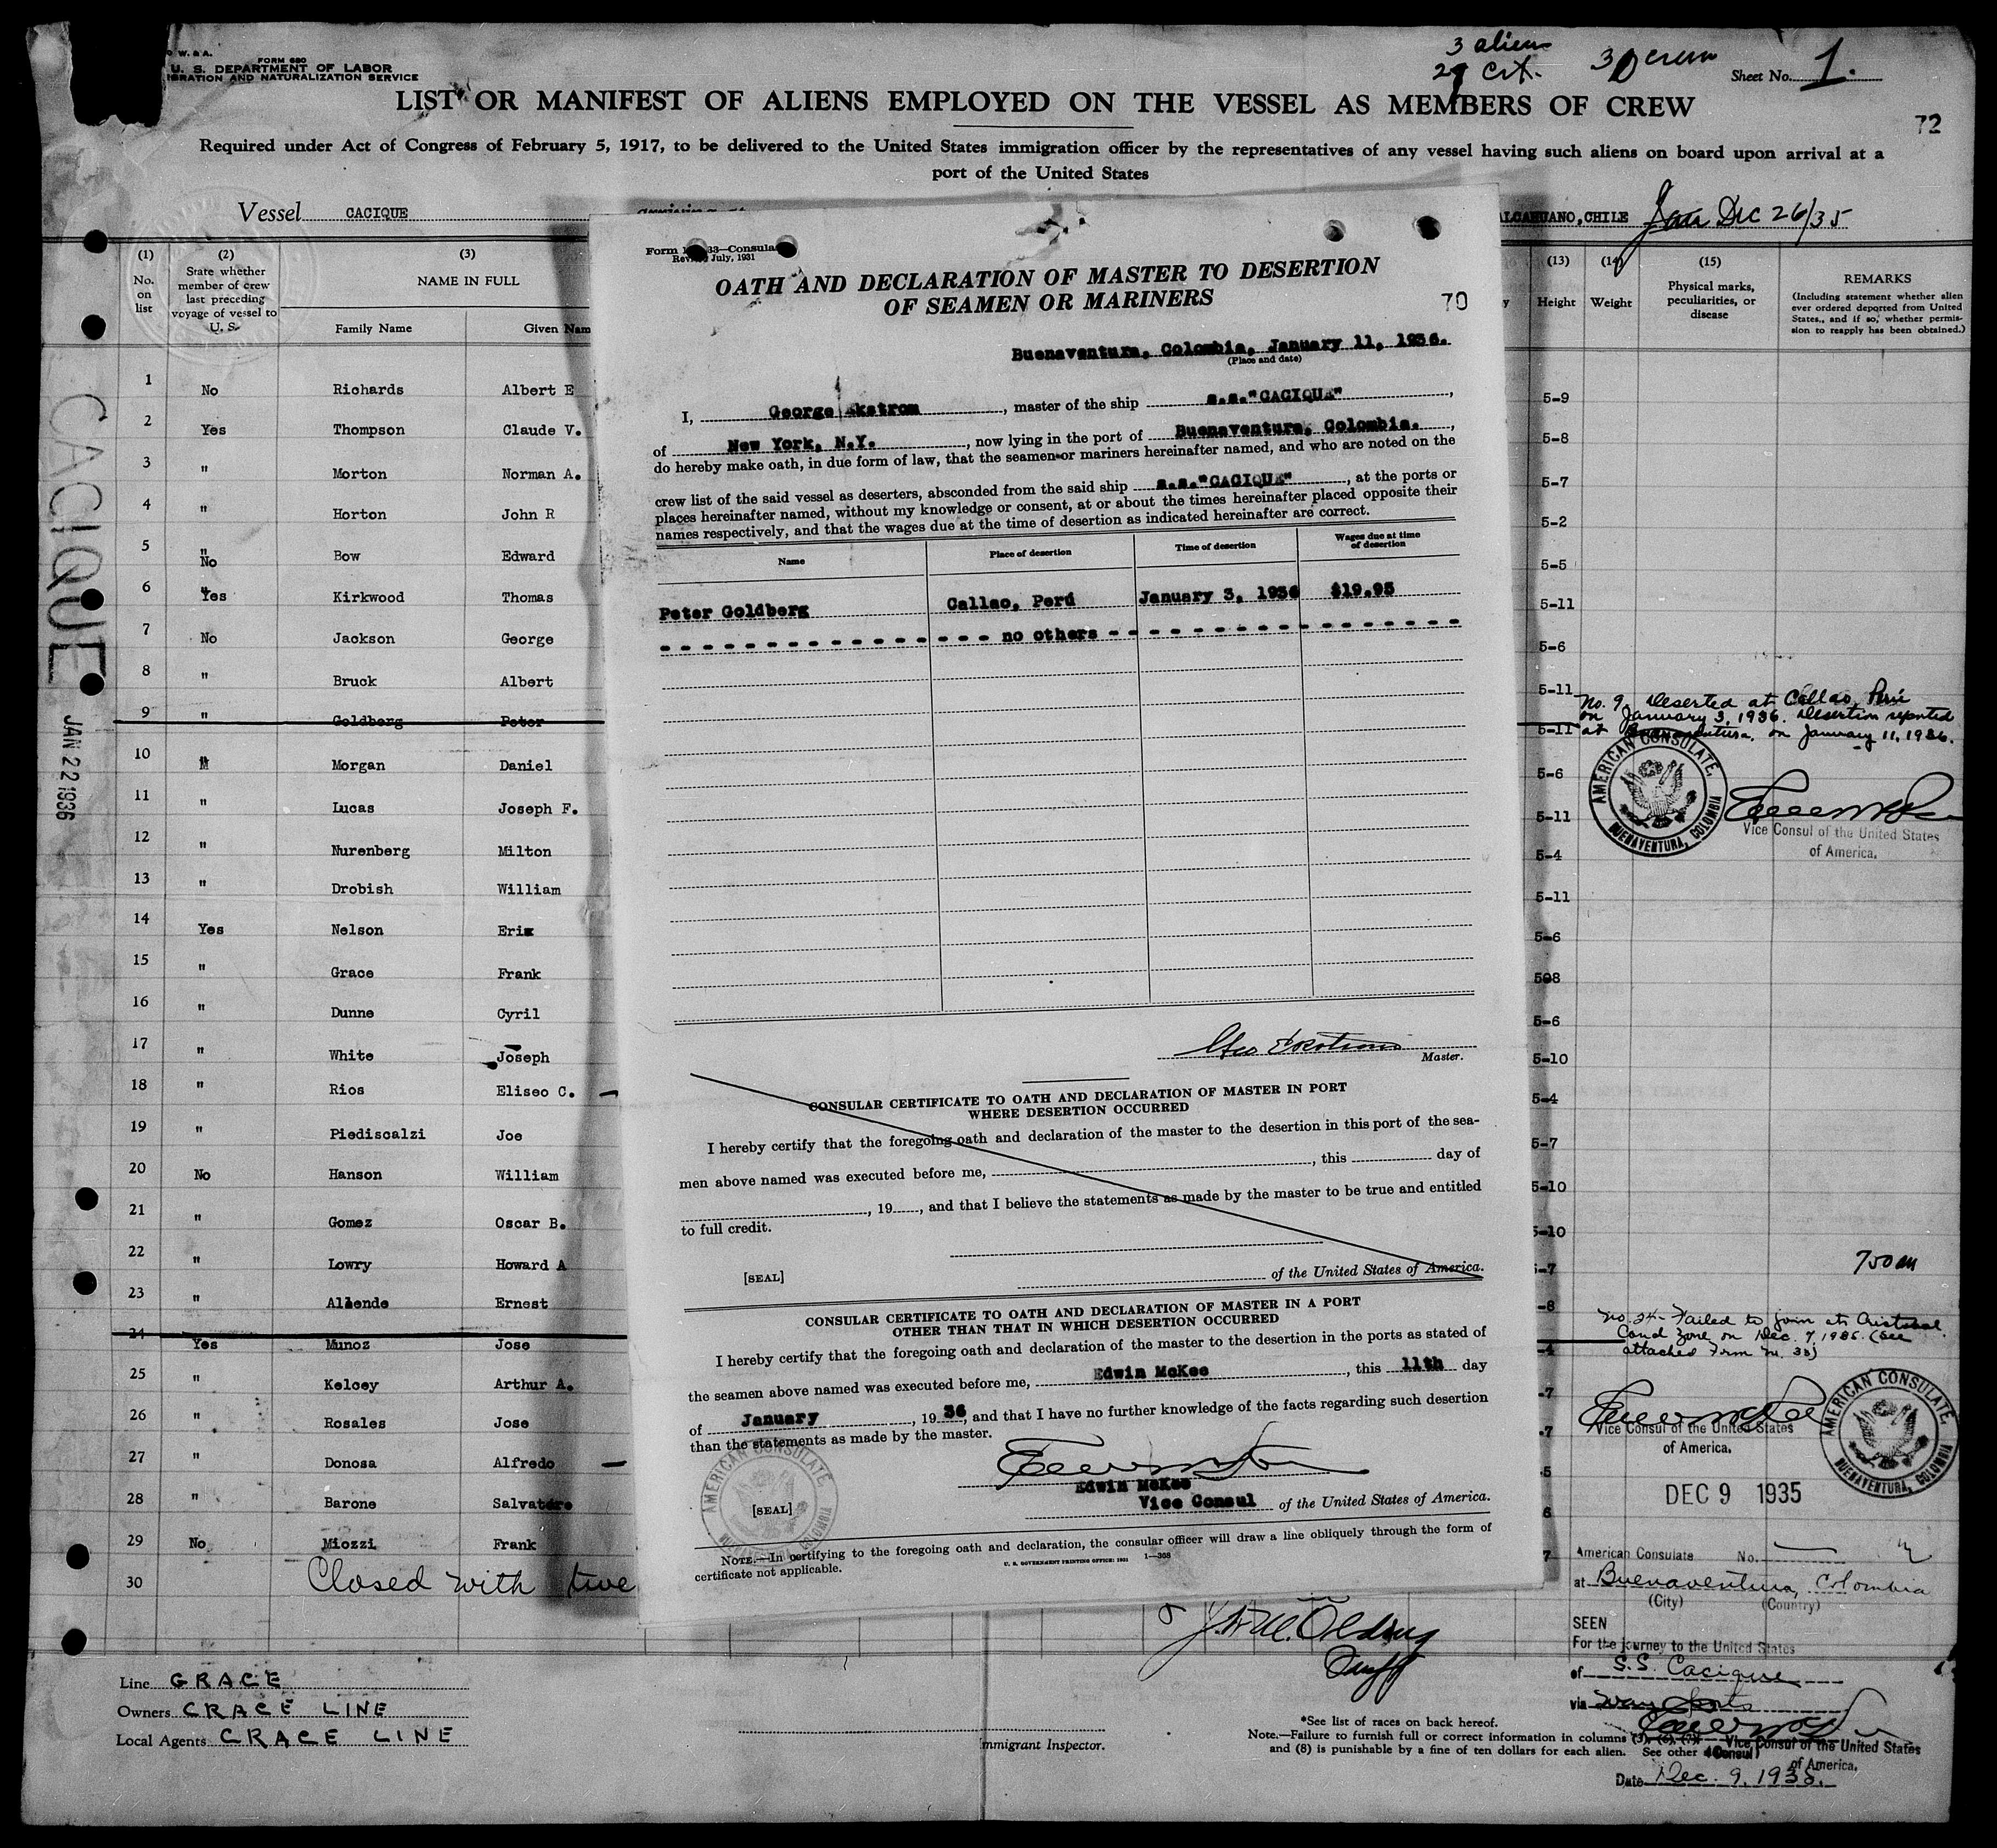 FORM 680
U. S. DEPARTMENT OF LABOR
IMMIGRATION AND NATURALIZATION SERVICE
3 aliens
29 Cit.
30 crew
Sheet No. 1.
LIST OR MANIFEST OF ALIENS EMPLOYED ON THE VESSEL AS MEMBERS OF CREW
72
Required under Act of Congress of February 5, 1917, to be delivered to the United States immigration officer by the representatives of any vessel having such aliens on board upon arrival at a
port of the United States
Vessel CACIQUE
ALCAHUANO, CHILE Dec 26/35
(1) No. on list
(2) State whether member of crew last preceding voyage of vessel to U. S.
(3) NAME IN FULL
Family Name
Given Nam
(13) Height
(14) Weight
(15) Physical marks, peculiarities, or disease
REMARKS
(Including statement whether alien ever ordered deported from United States, and if so, whether permission to reapply has been obtained.)
1 No Richards Albert E 5-9
2 Yes Thompson Claude V. 5-8
3 " Morton Norman A. 5-7
4 " Horton John R 5-2
5 " No Bow Edward 5-5
6 Yes Kirkwood Thomas 5-11
7 No Jackson George 5-6
8 " Bruck Albert 5-11
9 " Goldberg Peter 5-11
10 " Morgan Daniel 5-6
11 " Lucas Joseph F. 5-11
12 " Nurenberg Milton 5-4
13 " Drobish William 5-11
14 Yes Nelson Eric 5-6
15 " Grace Frank 508
16 " Dunne Cyril 5-6
17 " White Joseph 5-10
18 " Rios Eliseo C. 5-4
19 " Piediscalzi Joe 5-7
20 No Hanson William 5-10
21 " Gomez Oscar B. 5-10
22 " Lowry Howard A -7
23 " Allende Ernest -8
24 Yes Munoz Jose -4
25 " Kelcey Arthur A. -7
26 " Rosales Jose -7
27 " Donosa Alfredo 5
28 " Barone Salvatore 6
29 No Miozzi Frank 7
30 Closed with twe
CACIQUE
JAN 22 1936
Form 1 33—Consular
Revised July, 1931
OATH AND DECLARATION OF MASTER TO DESERTION
OF SEAMEN OR MARINERS
70
Buenaventura, Colombia, January 11, 1936.
(Place and date)
I, George Ekstrom, master of the ship s.s."CACIQUE",
of New York, N.Y., now lying in the port of Buenaventura, Colombia.,
do hereby make oath, in due form of law, that the seamen or mariners hereinafter named, and who are noted on the
crew list of the said vessel as deserters, absconded from the said ship s.s."CACIQUE", at the ports or
places hereinafter named, without my knowledge or consent, at or about the times hereinafter placed opposite their
names respectively, and that the wages due at the time of desertion as indicated hereinafter are correct.
Name
Place of desertion
Time of desertion
Wages due at time of desertion
Peter Goldberg Callao, Perú January 3, 1936 $19.95
- - - no others - - -
Geo Ekstrom
Master.
CONSULAR CERTIFICATE TO OATH AND DECLARATION OF MASTER IN PORT
WHERE DESERTION OCCURRED
I hereby certify that the foregoing oath and declaration of the master to the desertion in this port of the sea-
men above named was executed before me, , this day of
, 19 , and that I believe the statements as made by the master to be true and entitled
to full credit.
[SEAL]
of the United States of America.
CONSULAR CERTIFICATE TO OATH AND DECLARATION OF MASTER IN A PORT
OTHER THAN THAT IN WHICH DESERTION OCCURRED
I hereby certify that the foregoing oath and declaration of the master to the desertion in the ports as stated of
the seamen above named was executed before me, Edwin McKee, this 11th day
of January, 1936, and that I have no further knowledge of the facts regarding such desertion
than the statements as made by the master.
Edwin McKee
Vice Consul of the United States of America.
[SEAL]
AMERICAN CONSULATE
NOTE.—In certifying to the foregoing oath and declaration, the consular officer will draw a line obliquely through the form of
certificate not applicable.
U. S. GOVERNMENT PRINTING OFFICE: 1931 1—368
No. 9. Deserted at Callao, Perú
on January 3, 1936. Desertion reported
at Buenaventura, on January 11, 1936.
AMERICAN CONSULATE, BUENAVENTURA, COLOMBIA
Vice Consul of the United States
of America.
No. 24- Failed to join at Cristobal
Canal Zone on Dec. 7, 1935. (See
attached Form
AMERICAN CONSULATE, BUENAVENTURA, COLOMBIA
Vice Consul of the United States
of America.
DEC 9 1935
American Consulate No.
at Buenaventura, Colombia
(City) (Country)
SEEN
For the journey to the United States
of S.S. Cacique
via way ports
Vice Consul of the United States
of America.
Date Dec. 9, 1935.
Line GRACE
Owners GRACE LINE
Local Agents GRACE LINE
Immigrant Inspector.
*See list of races on back hereof.
Note.—Failure to furnish full or correct information in columns (3), (6), (7)
and (8) is punishable by a fine of ten dollars for each alien. See other